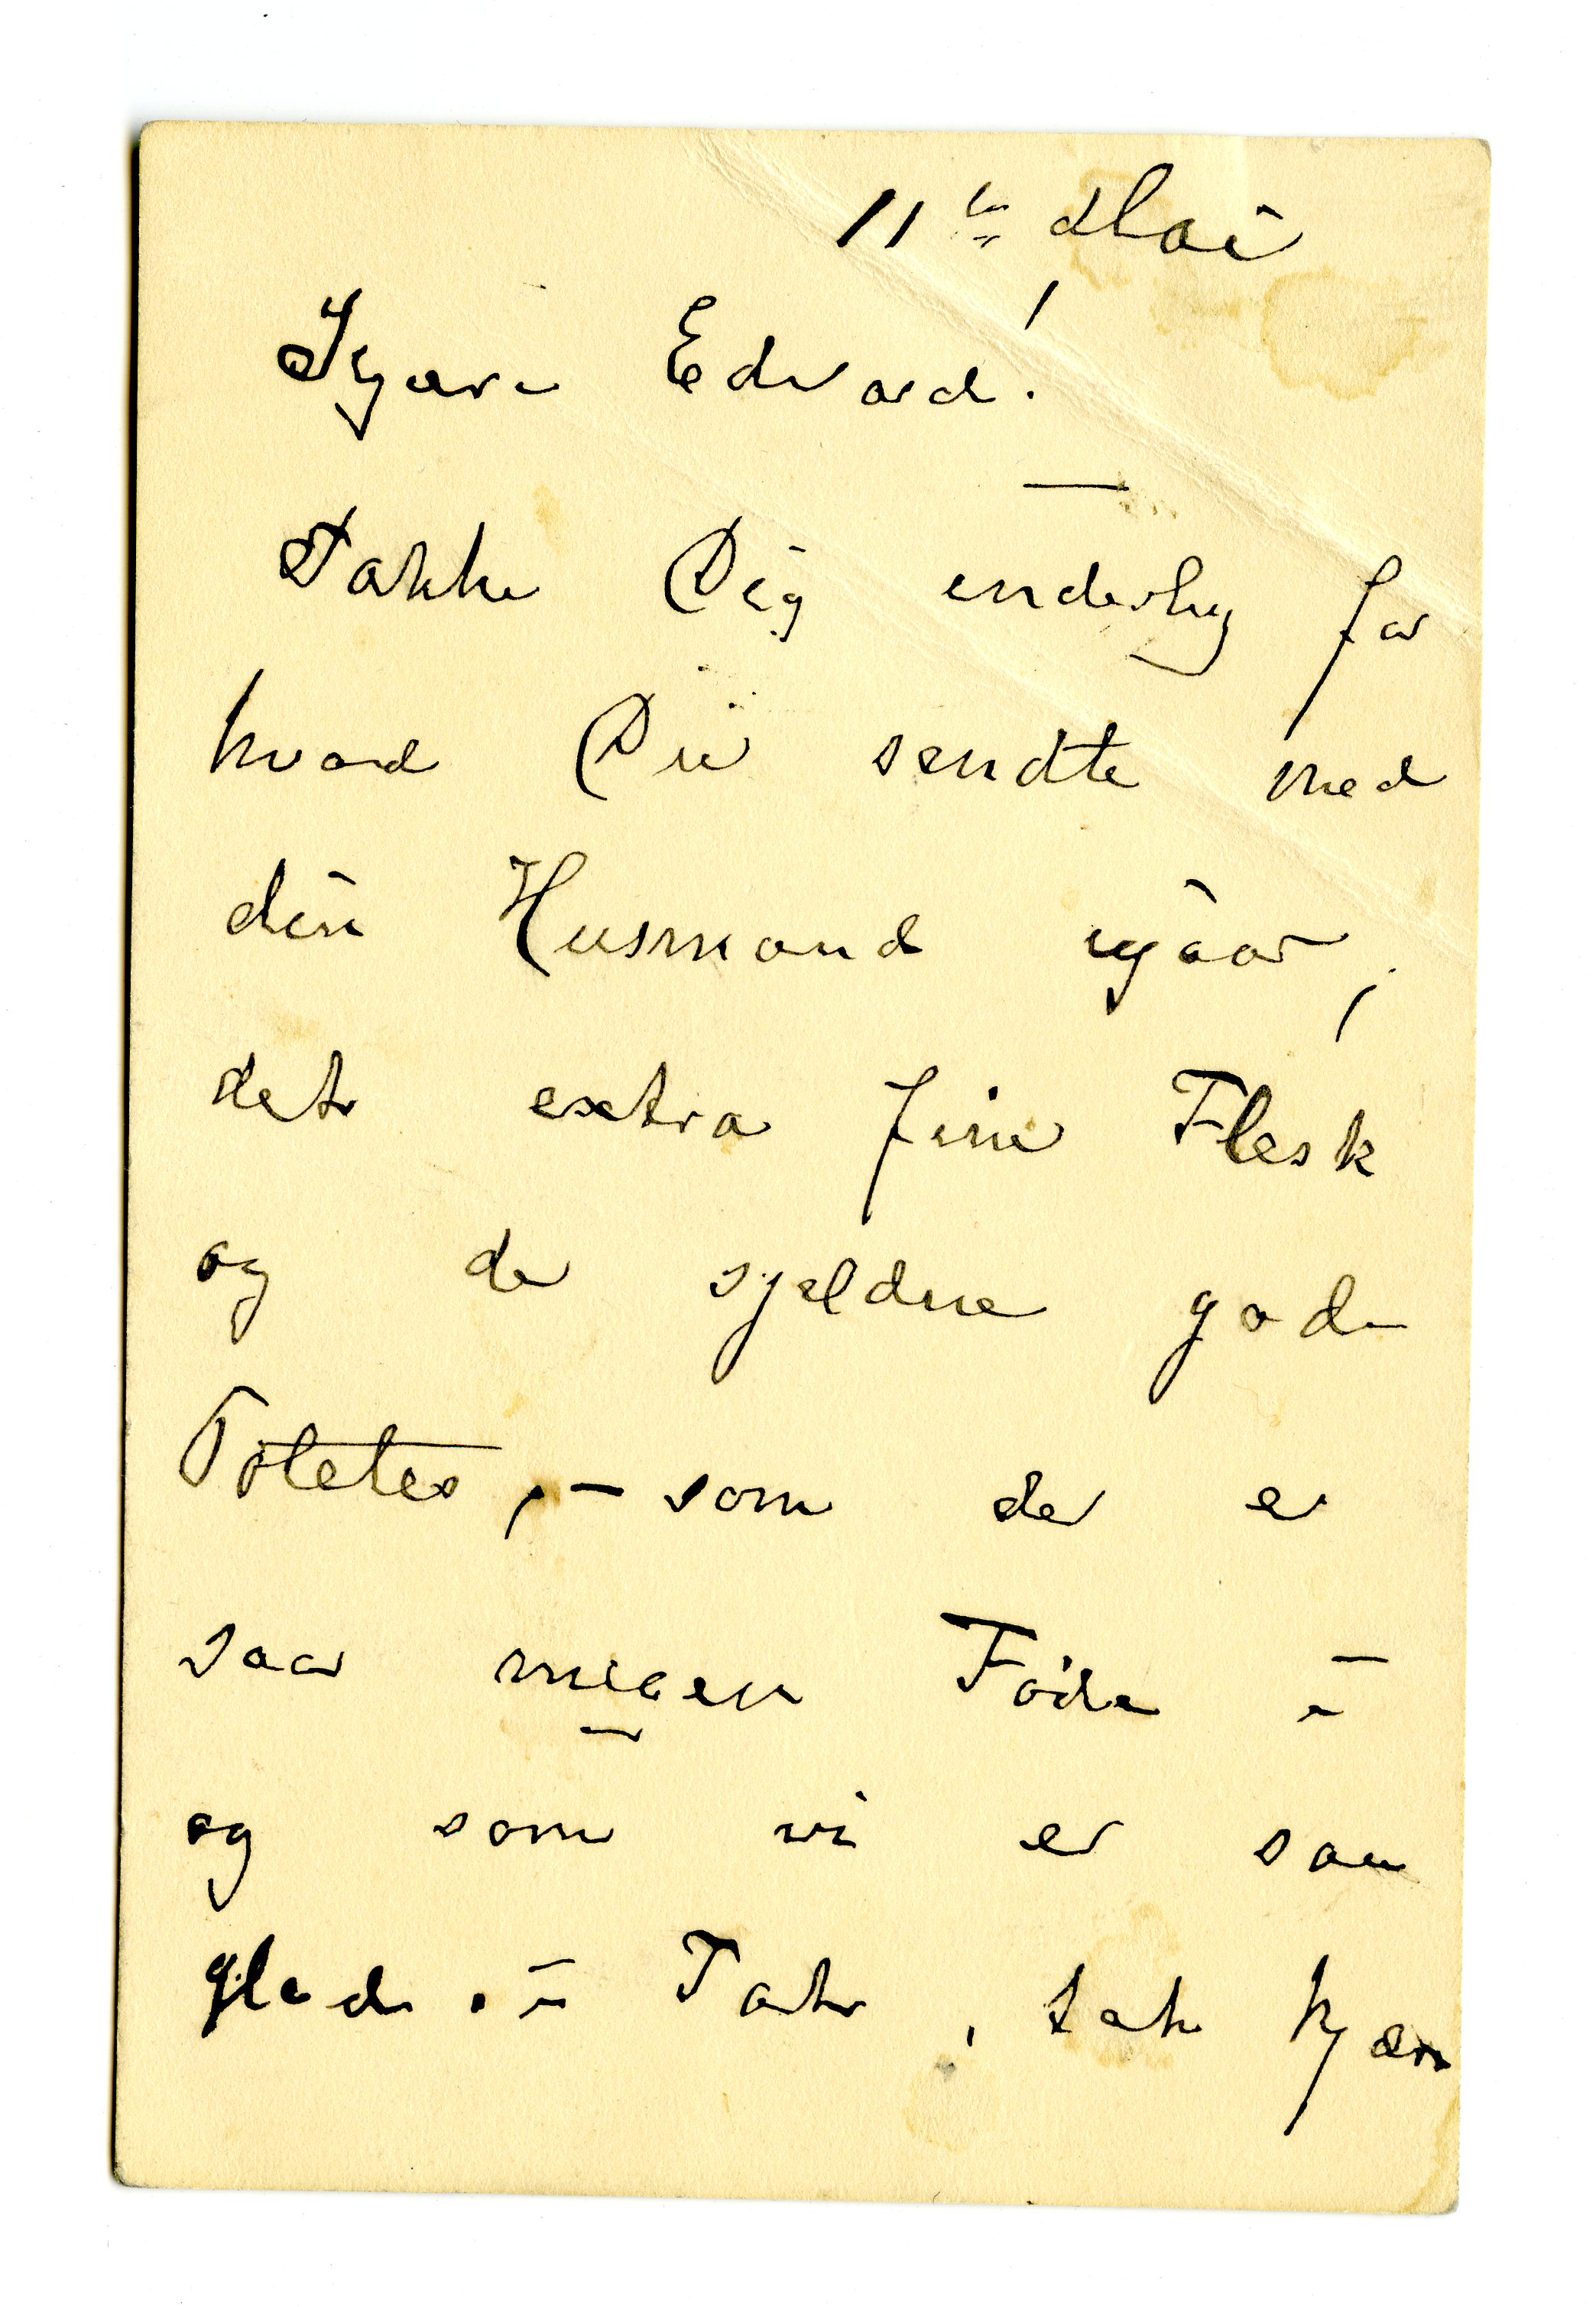 11te Mai
Kjære Edvard!
Takke Dig inderlig for
hvad Du sendte med
din Husmand igaar,
det extra fine Flesk
og de sjeldne gode
Poteter, – som der er
saa megen Føde i
og som vi er saa
glad i – Tak, tak kjære